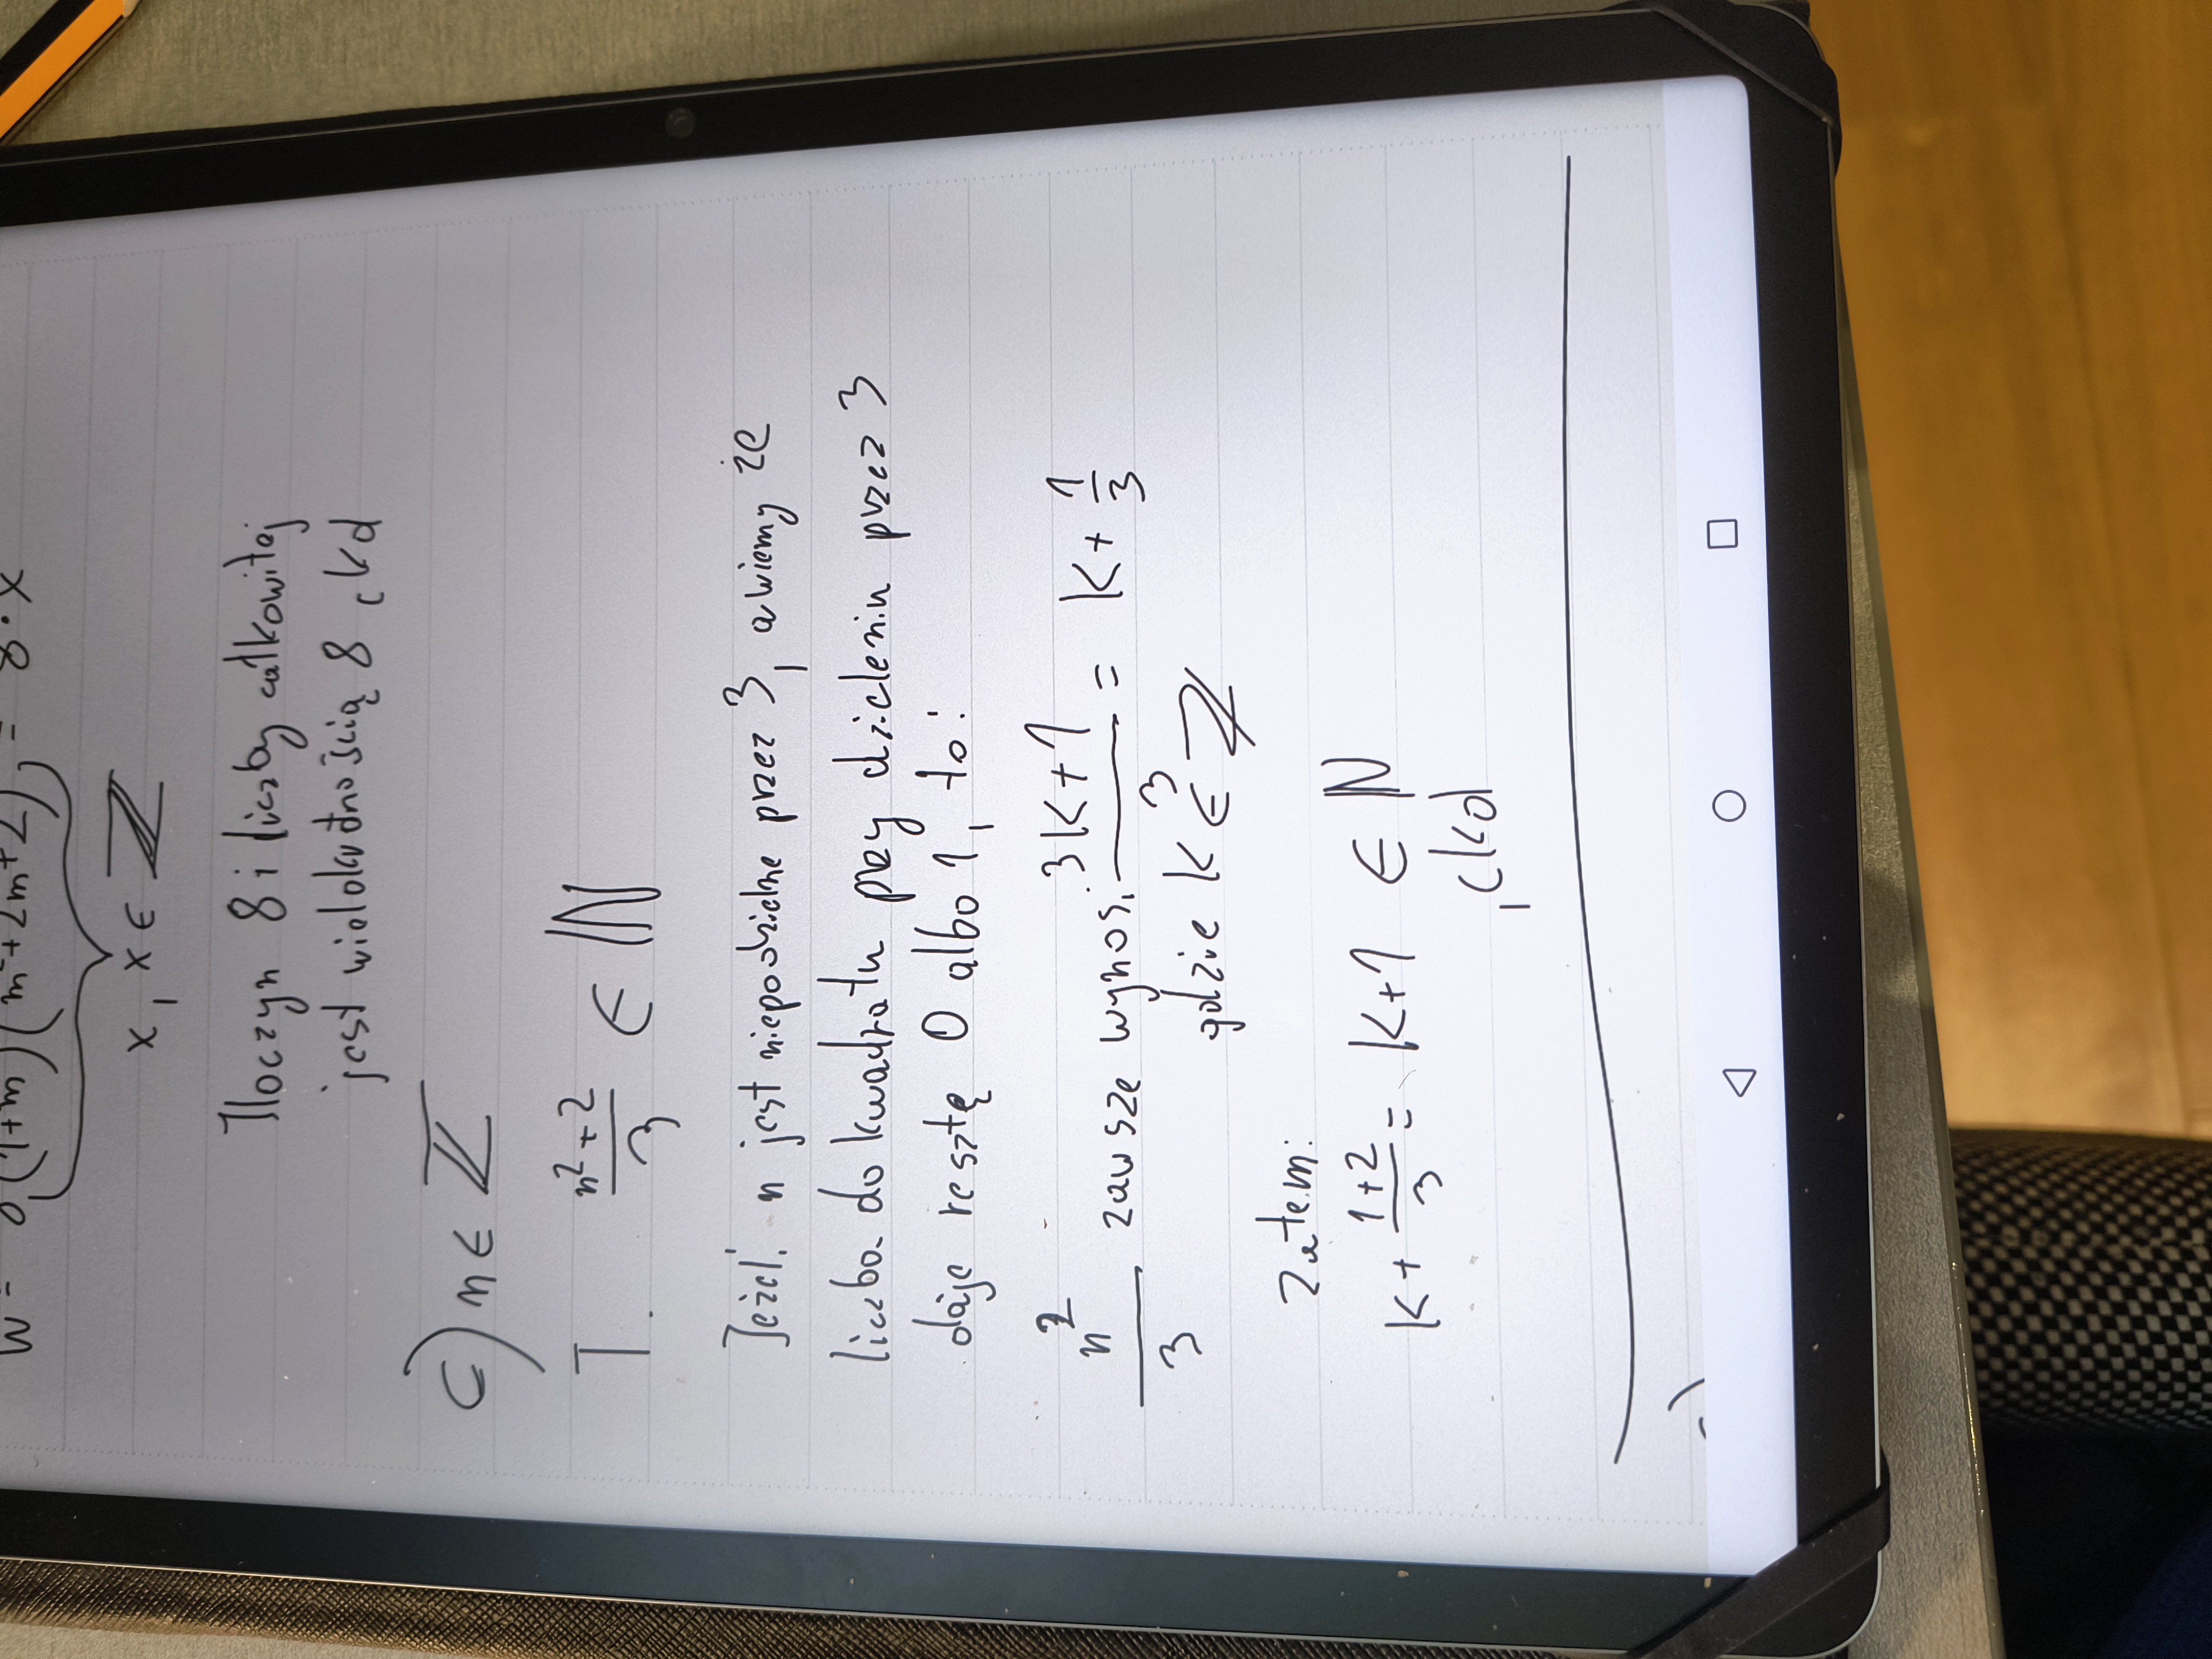 (1+m)(m²+2m+2) = 8·x
x, x ∈ ℤ
Iloczyn 8 i liczby całkowitej
jest wielokrotnością 8 ckd
c) n ∈ ℤ
T. n²+2/3 ∈ ℕ
Jeżeli n jest niepodzielne przez 3, a wiemy że
liczba do kwadratu przy dzieleniu przez 3
daje resztę 0 albo 1, to:
n²/3 zawsze wynosi 3k+1/3 = k + 1/3
gdzie k ∈ ℤ
Zatem:
k + 1+2/3 = k+1 ∈ ℕ
, ckd